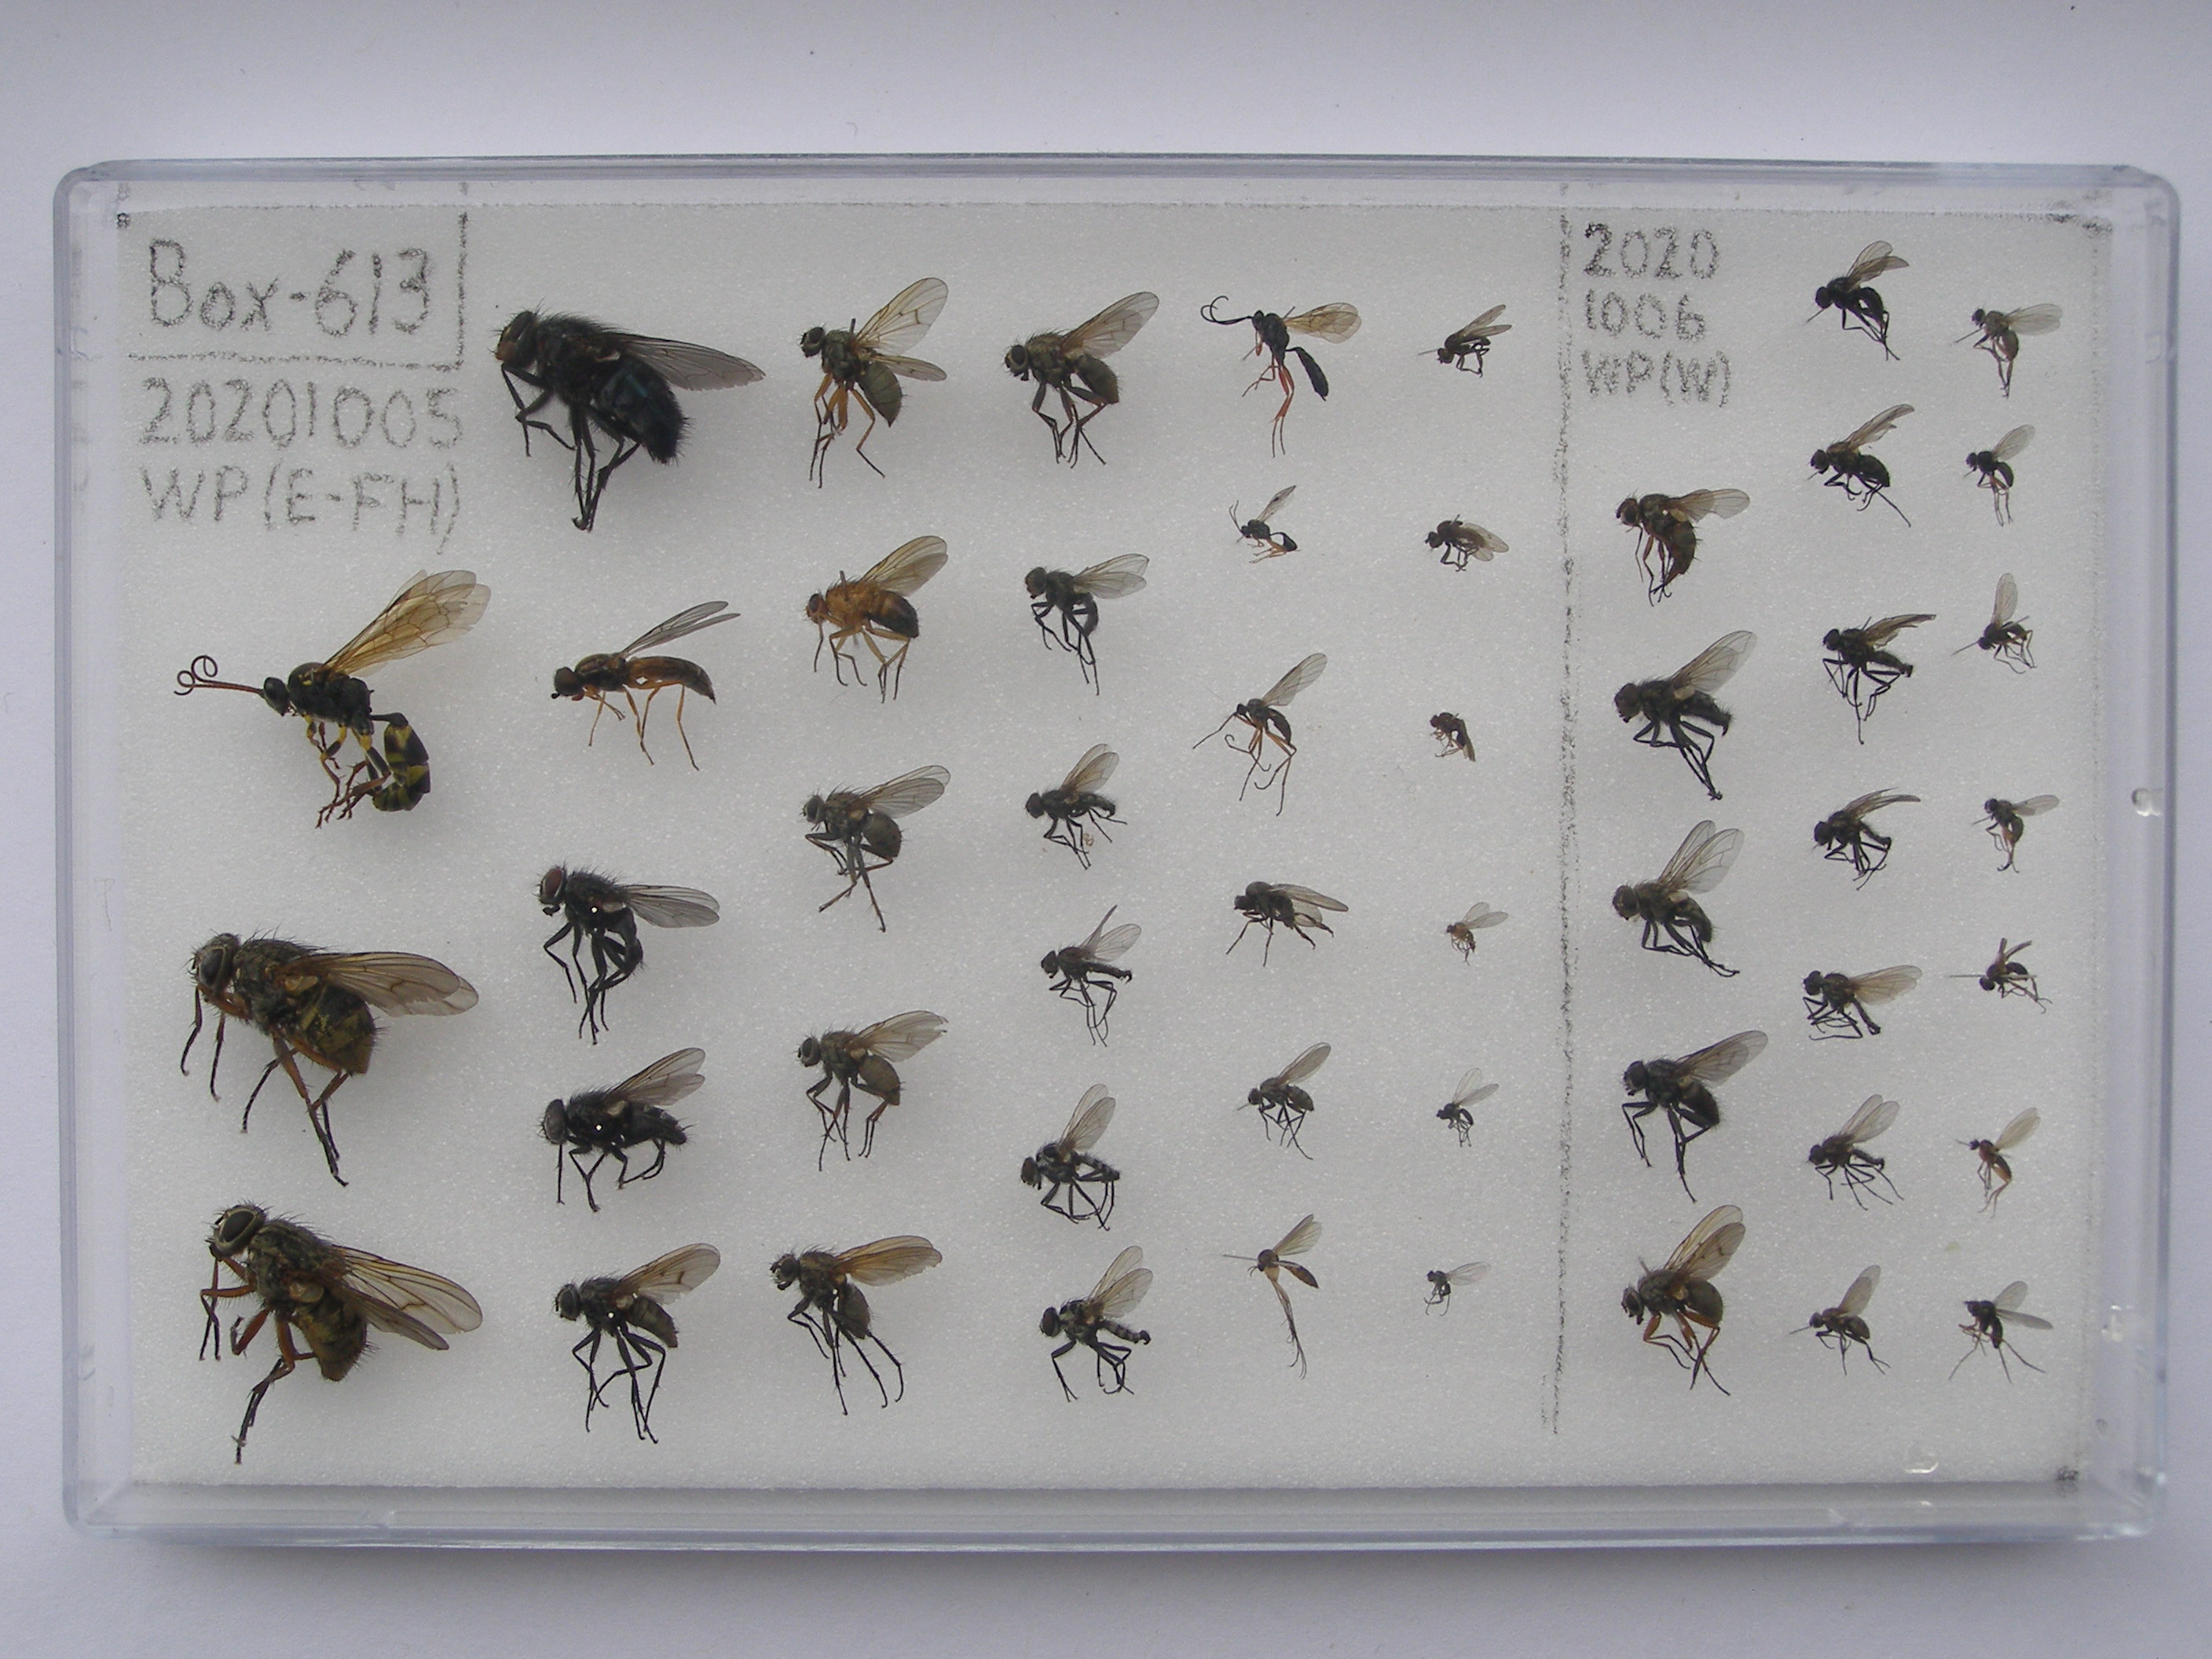 Box-613
20201005
WP(E-FH)
2020
1006
WP(W)